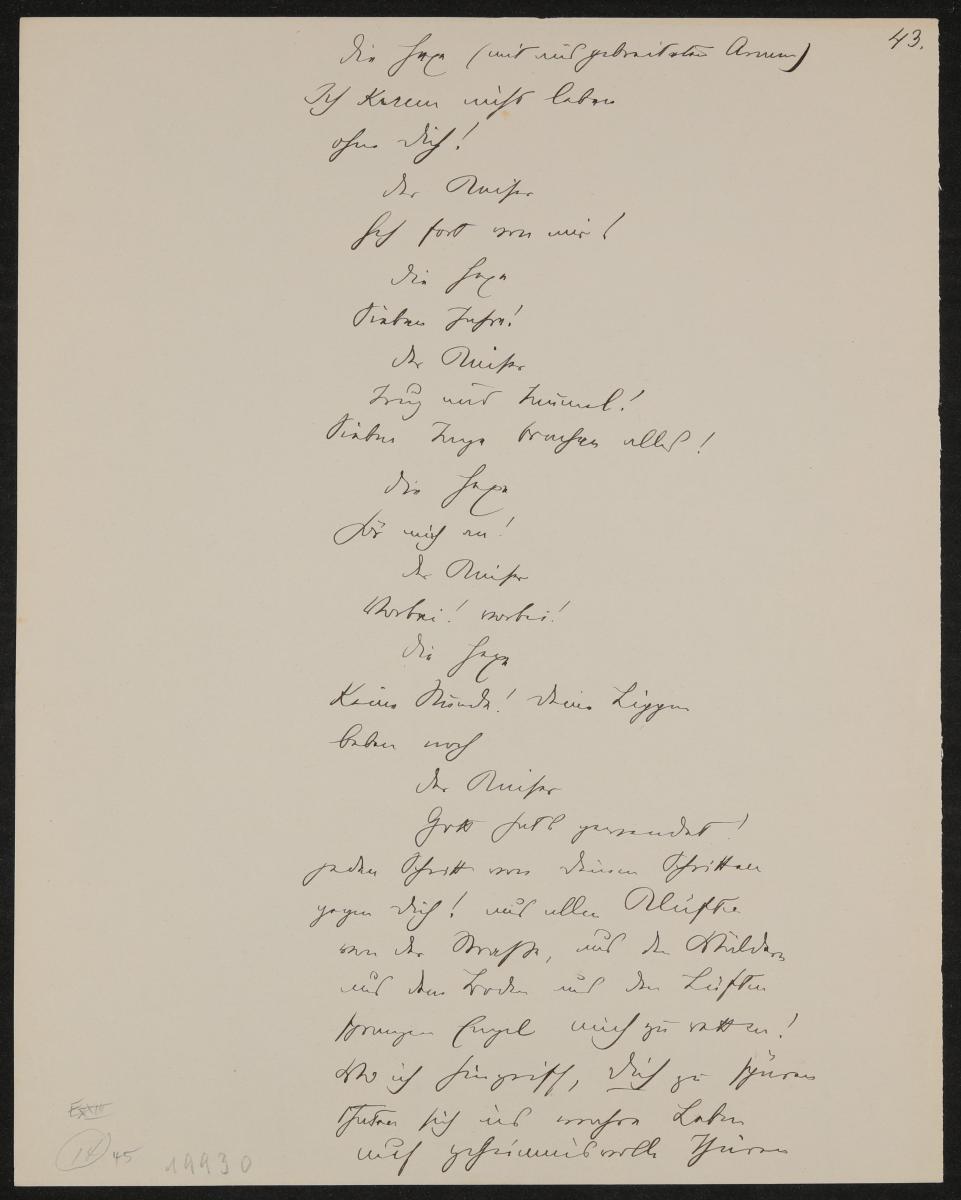 43.
die Hexe (mit ausgebreiteten Armen)
Ich kann nicht leben
ohne dich!
der Kaiser
Geh fort von mir!
die Hexe
Sieben Jahre!
der Kaiser
Trug und Taumel!
Sieben Tage brachen alles!
die Hexe
Hör mich an!
der Kaiser
Vorbei! vorbei!
die Hexe
Keine Stunde! deine Lippen
beben noch
der Kaiser
Gott hats gewendet!
jeden Schritt von deinen Schritten
gegen dich! aus allen Klüften
von der Straße, aus den Wäldern
aus dem Boden aus den Lüften
sprangen Engel mich zu retten!
Wo ich hingriff, dich zu spüren
thaten sich ins wahre Leben
auf geheimnisvolle Thüren
14 45 19930